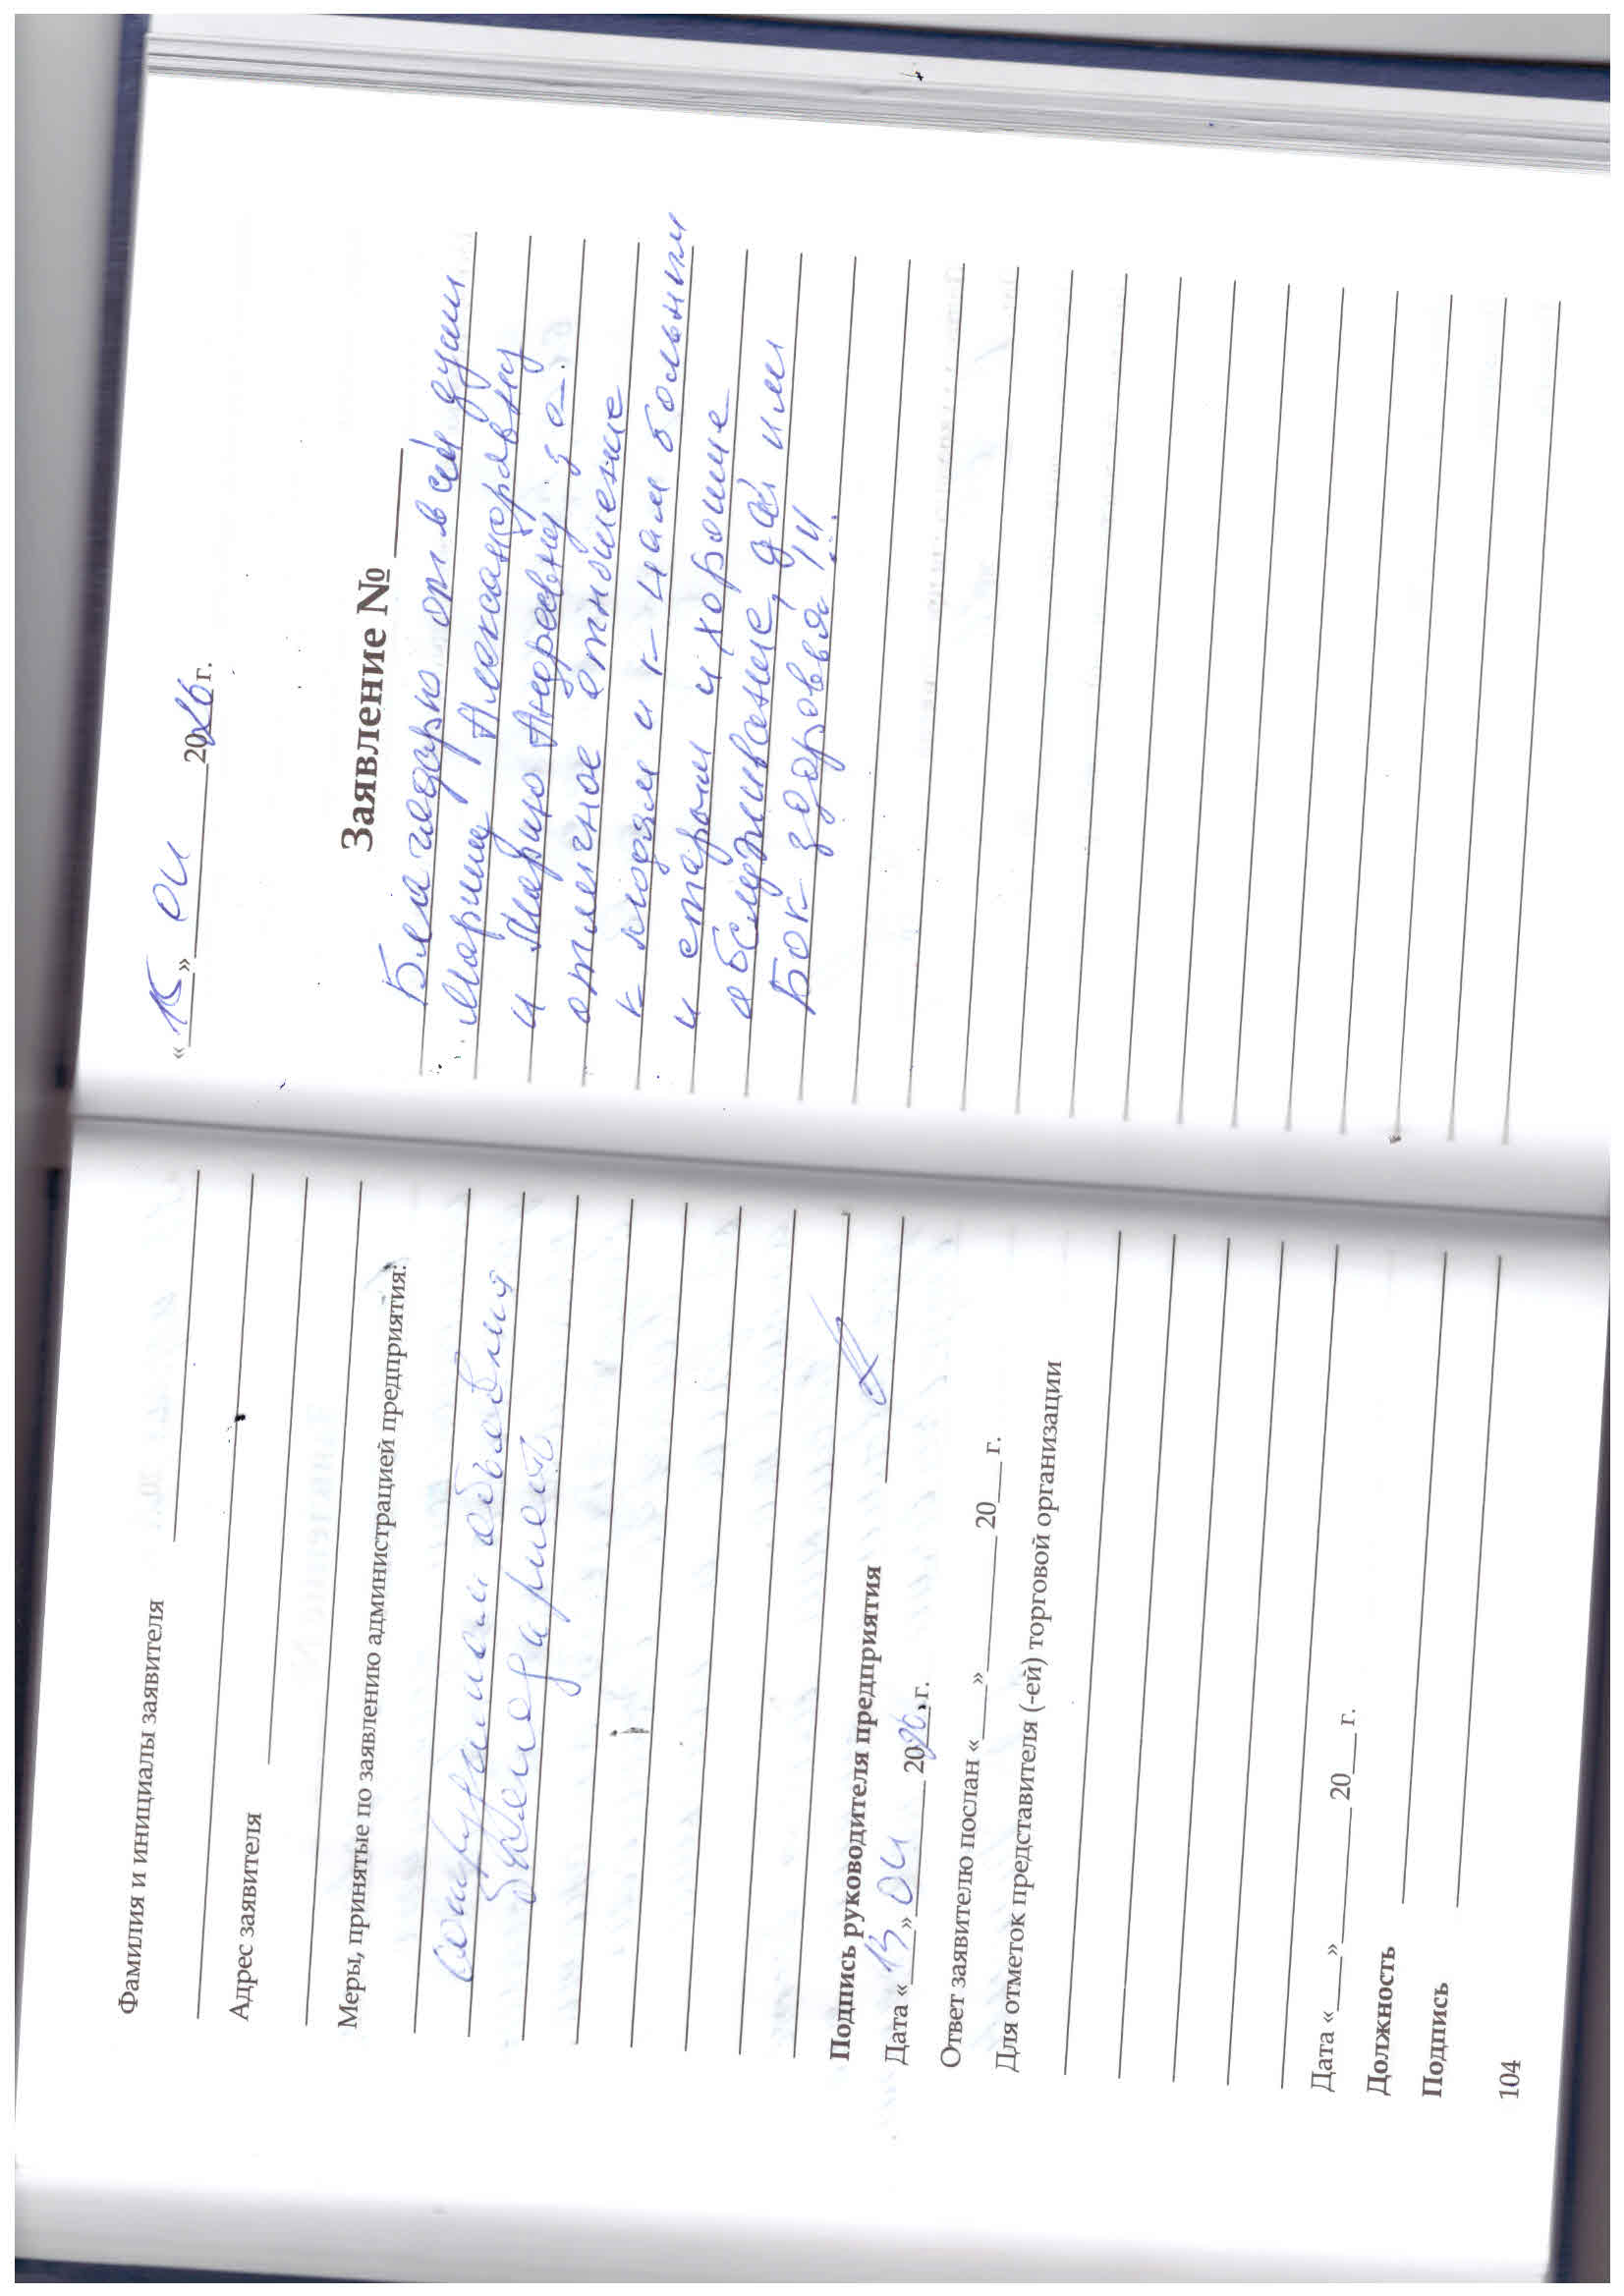 Фамилия и инициалы заявителя
Адрес заявителя
Меры, принятые по заявлению администрацией предприятия:
объявлена
благодарность
Подпись руководителя предприятия
Дата « 13 » 04 2026 г.
Ответ заявителю послан «___» ______ 20___ г.
Для отметок представителя (-ей) торговой организации
Дата «___» ______ 20___ г.
Должность
Подпись
104
« 15 » 04 2026 г.
Заявление № ____
Благодарю от всей души
Марину Александравну
и Марию Андреевну за
отличное отношение
к людям и к нам больным
и старым и хорошие
абслуживание, дай им
Бок здоровья !!!